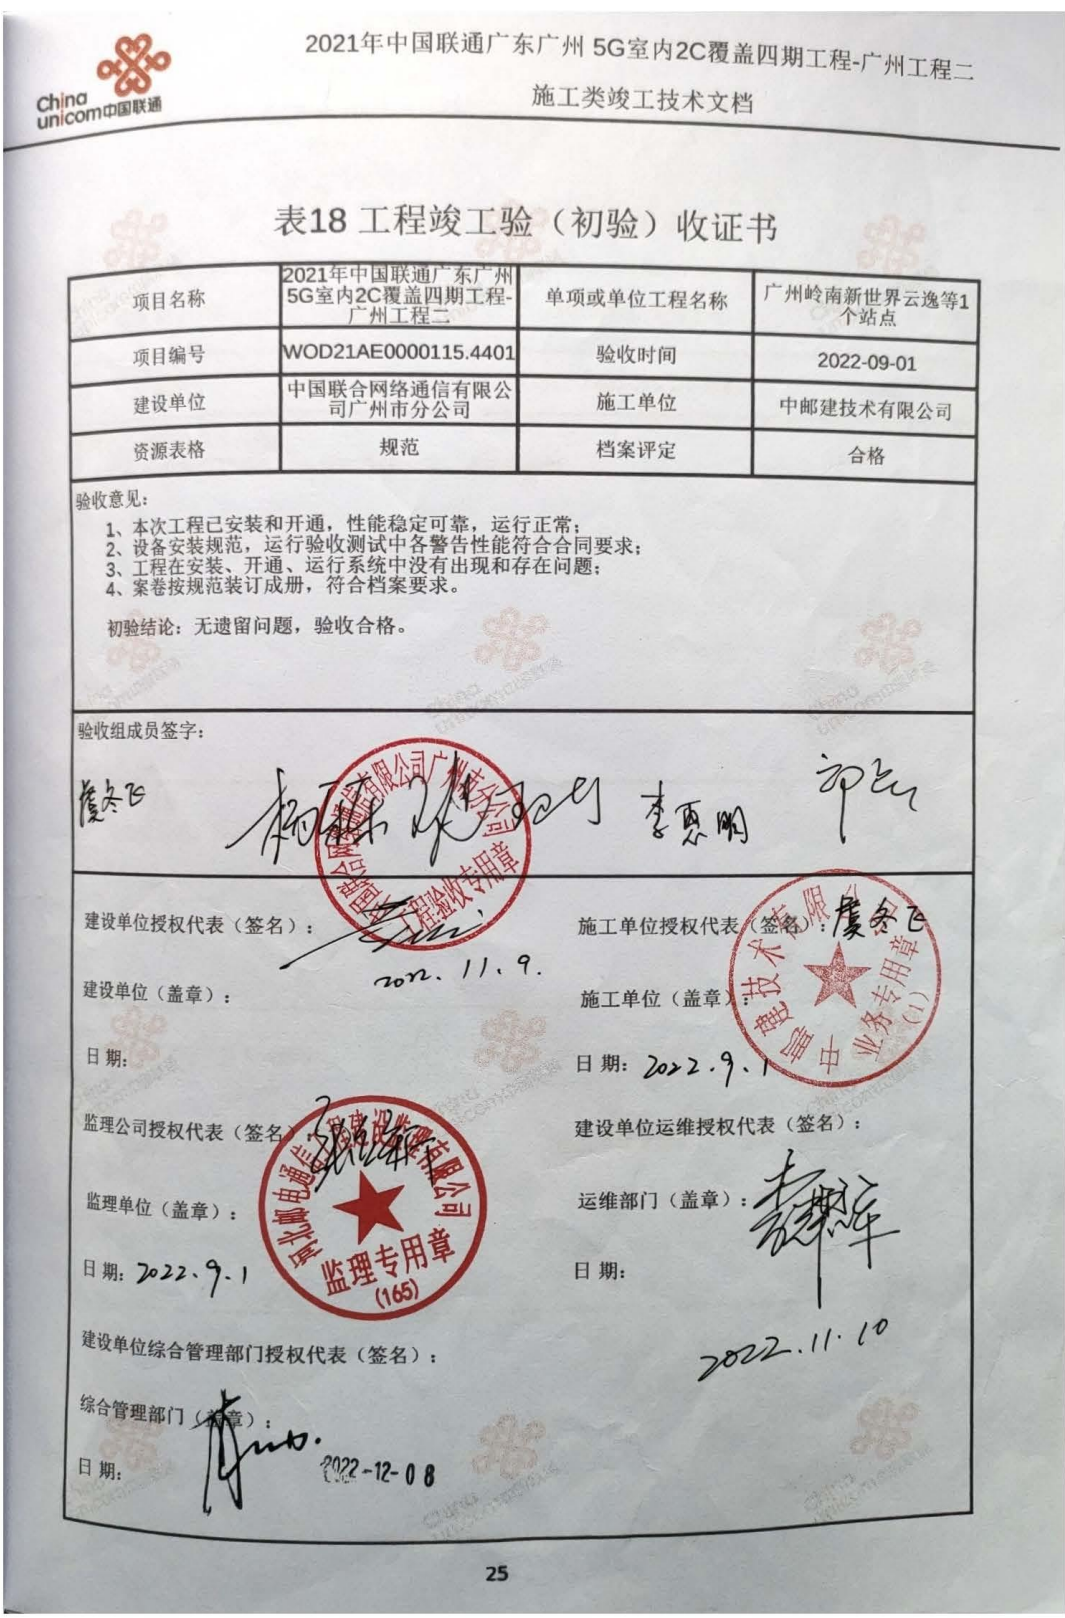 China
unicom中国联通
2021年中国联通广东广州 5G室内2C覆盖四期工程-广州工程二
施工类竣工技术文档
表18 工程竣工验（初验）收证书
项目名称
2021年中国联通广东广州
5G室内2C覆盖四期工程-
广州工程二
单项或单位工程名称
广州岭南新世界云逸等1
个站点
项目编号
WOD21AE0000115.4401
验收时间
2022-09-01
建设单位
中国联合网络通信有限公
司广州市分公司
施工单位
中邮建技术有限公司
资源表格
规范
档案评定
合格
验收意见：
1、本次工程已安装和开通，性能稳定可靠，运行正常；
2、设备安装规范，运行验收测试中各警告性能符合合同要求；
3、工程在安装、开通、运行系统中没有出现和存在问题；
4、案卷按规范装订成册，符合档案要求。
初验结论：无遗留问题，验收合格。
验收组成员签字：
虞冬飞
李惠明
中国联合网络通信有限公司广州市分公司
工程验收专用章
建设单位授权代表（签名）：
2022.11.9.
建设单位（盖章）：
日 期：
施工单位授权代表（签名）：虞冬飞
施工单位（盖章）：
中邮建技术有限公司
业务专用章
(1)
日 期：2022.9.1
监理公司授权代表（签名）：
监理单位（盖章）：
河北邮电通信工程建设监理有限公司
监理专用章
(165)
日 期：2022.9.1
建设单位运维授权代表（签名）：
运维部门（盖章）：
日 期：
2022.11.10
建设单位综合管理部门授权代表（签名）：
综合管理部门（盖章）：
日 期：
2022-12-08
25